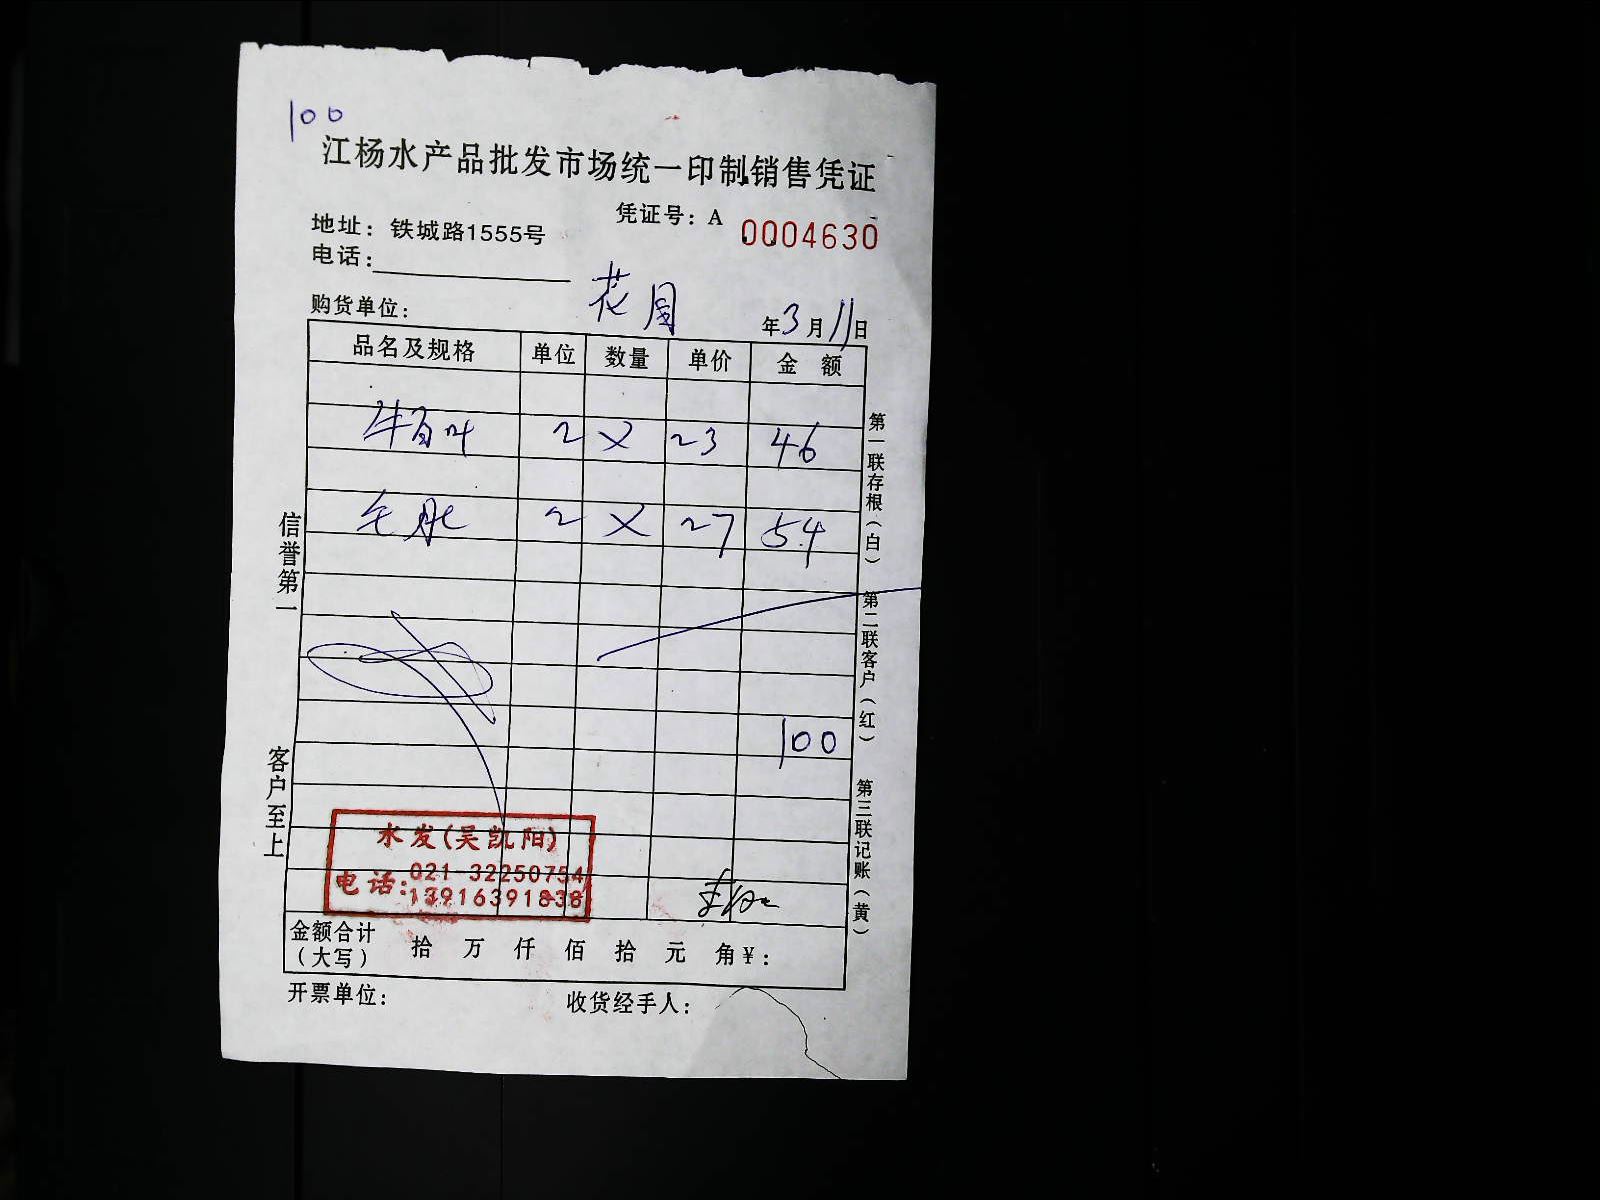 100
江杨水产品批发市场统一印制销售凭证
凭证号：A 0004630
地址：铁城路1555号
电话：
购货单位： 花园 年3月11日
品名及规格 单位 数量 单价 金 额
牛百叶 2 × 23 46
毛肚 2 × 27 54
100
水发(吴凯阳)
电话：021-32250754
13916391838
金额合计（大写） 拾 万 仟 佰 拾 元 角￥：
开票单位： 收货经手人：
信誉第一 客户至上
第一联存根（白） 第二联客户（红） 第三联记账（黄）